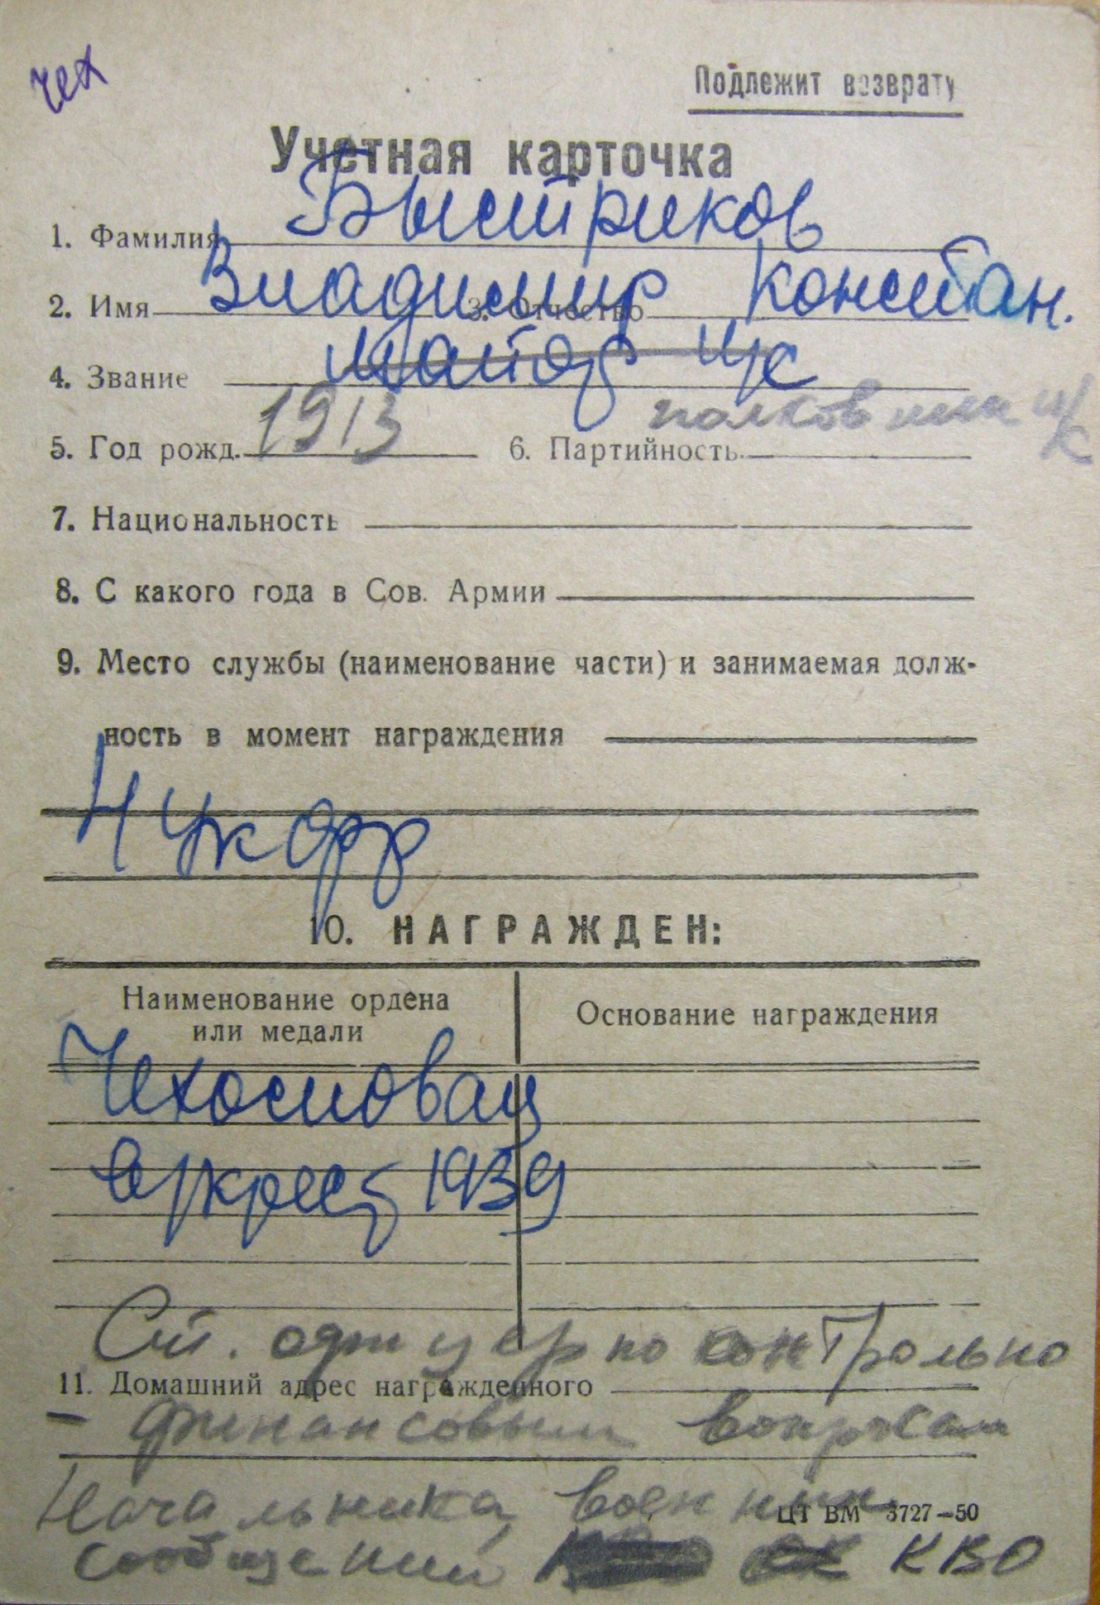 чех
Подлежит возврату
Учетная карточка
1. Фамилия Быстриков
2. Имя Владимир 3. Отчество Констан.
4. Звание майор и/с
полковник и/с
5. Год рожд. 1913 6. Партийность
7. Национальность
8. С какого года в Сов. Армии
9. Место службы (наименование части) и занимаемая долж-
ность в момент награждения
10. НАГРАЖДЕН:
Наименование ордена или медали
Основание награждения
Чехословац
в/крест 1939
Ст. офицер по контрольно
11. Домашний адрес награжденного
- финансовым вопросам
Начальника военных
ЦТ ВМ 3727—50
сообщений КВО